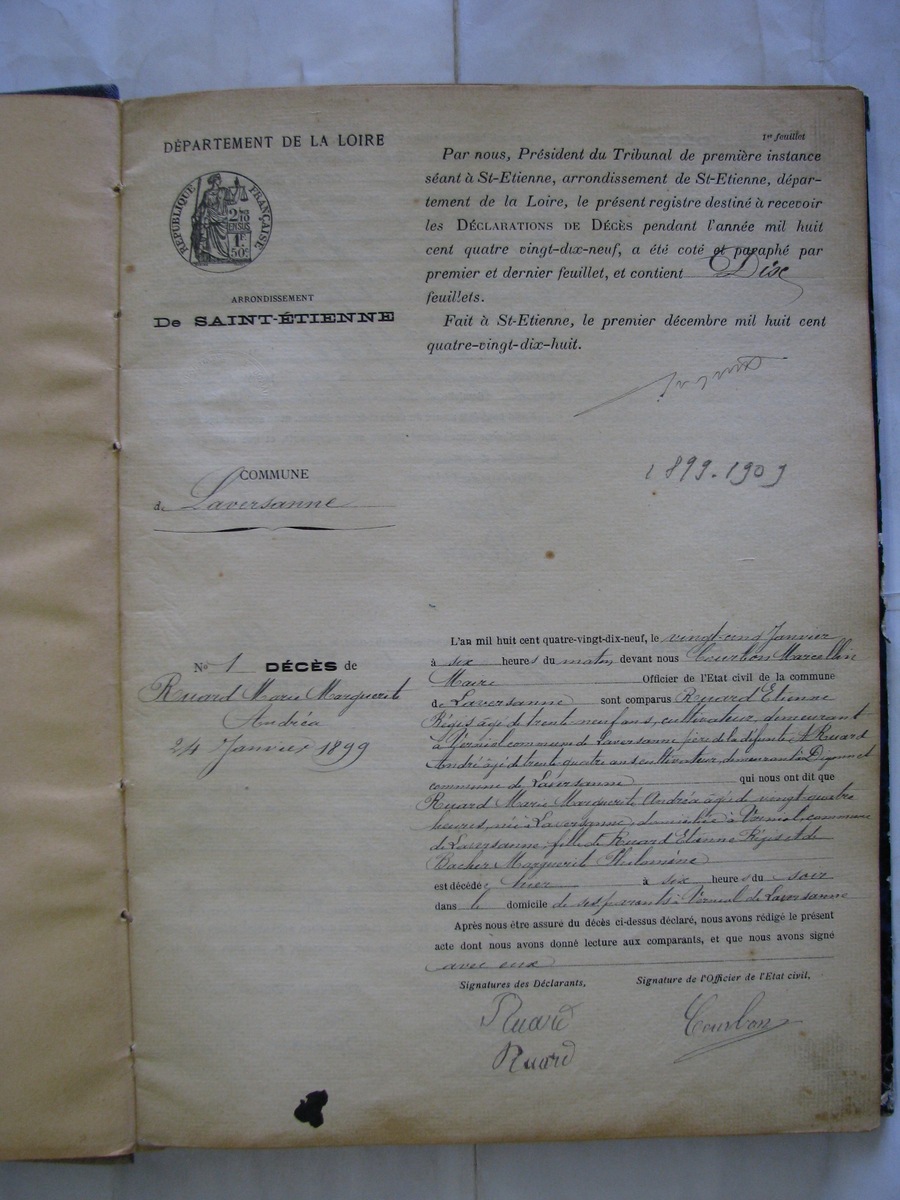 DÉPARTEMENT DE LA LOIRE
RÉPUBLIQUE FRANÇAISE
2/10
EN SUS
1F
50c
ARRONDISSEMENT
De SAINT-ÉTIENNE
COMMUNE
de Laversanne
1er feuillet
Par nous, Président du Tribunal de première instance
séant à St-Etienne, arrondissement de St-Etienne, dépar-
tement de la Loire, le présent registre destiné à recevoir
les DÉCLARATIONS DE DÉCÈS pendant l'année mil huit
cent quatre vingt-dix-neuf, a été coté et paraphé par
premier et dernier feuillet, et contient Dix
feuillets.
Fait à St-Etienne, le premier décembre mil huit cent
quatre-vingt-dix-huit.
1899-1909
No 1 DÉCÈS de
Ruard Marie Marguerite
Andréa
24 Janvier 1899
L'AN mil huit cent quatre-vingt-dix-neuf, le vingt-cinq Janvier
à six heures du matin devant nous Courbon Marcellin
Maire Officier de l'Etat civil de la commune
de Laversanne sont comparus Ruard Etienne
Régis âgé de trente neuf ans, cultivateur, demeurant
à commune de Laversanne père de la défunte & Ruard
André âgé de trente quatre ans cultivateur, demeurant
commune de Laversanne qui nous ont dit que
Ruard Marie Marguerite Andréa âgé de vingt-quatre
heures, née à Laversanne, domiciliée à commune
de Laversanne, fille de Ruard Etienne Régis et de
Bacher Marguerite Philomène
est décédée hier à six heures du soir
dans le domicile de ses parents à de Laversanne
Après nous être assuré du décès ci-dessus déclaré, nous avons rédigé le présent
acte dont nous avons donné lecture aux comparants, et que nous avons signé
avec eux
Signatures des Déclarants,
Signature de l'Officier de l'Etat civil,
Ruard
Courbon
Ruard